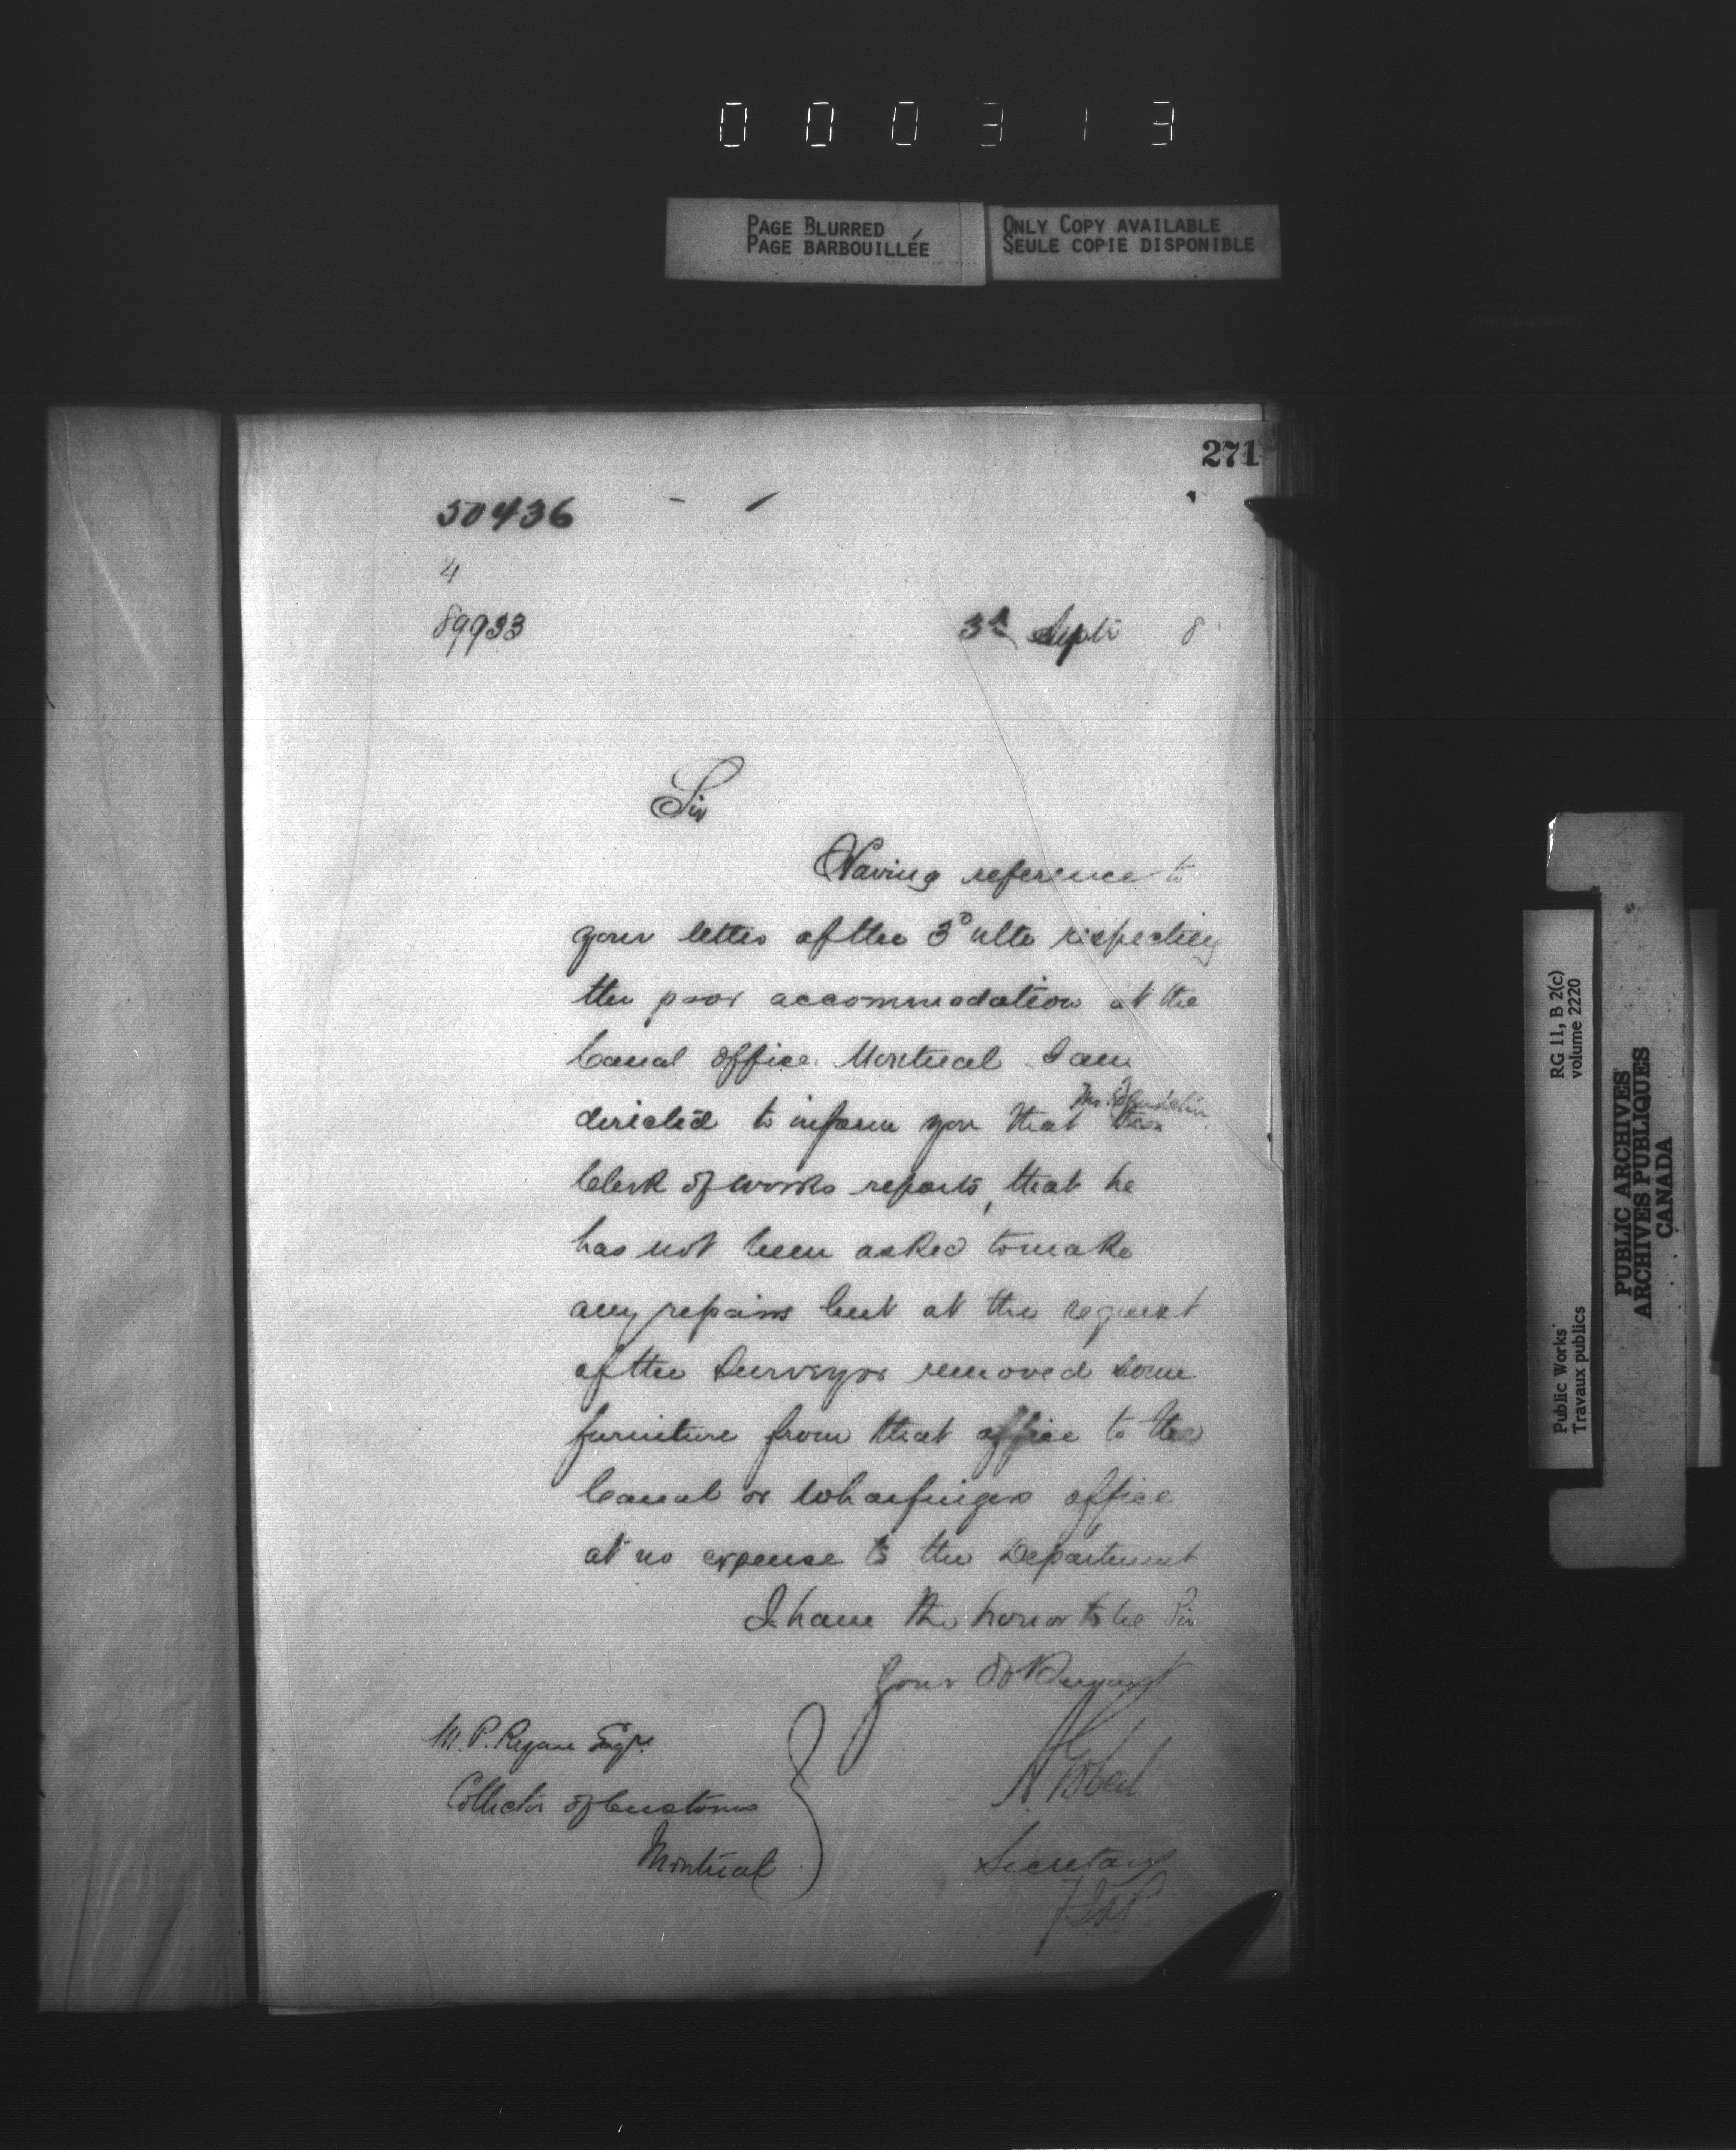 000313
PAGE BLURRED
PAGE BARBOUILLÉE
ONLY COPY AVAILABLE
SEULE COPIE DISPONIBLE
271
50436
4
89933
3d Septr 8
Sir
Having reference to
your letter of the 3o ulto respecting
the poor accommodation at the
Canal office Montreal I am
directed to inform you that
Clerk of works reports, that he
has not been asked to make
any repairs but at the request
of the Surveyor removed some
furniture from that office to the
Canal or Wharfingers office
at no expense to the Department
I have the honor to be Sir
Your Obt Servant
M. P. Ryan Esqre
Collector of Customs
Montreal
A Gobeil
Secretary
RG 11, B 2(c)
volume 2220
Public Works
Travaux publics
PUBLIC ARCHIVES
ARCHIVES PUBLIQUES
CANADA